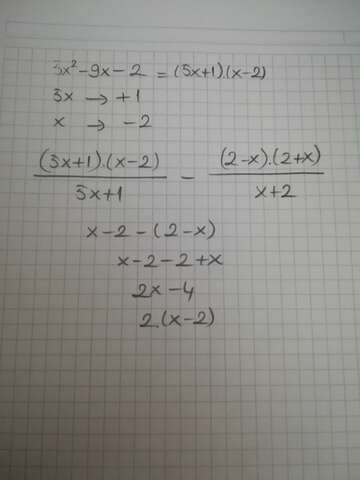 5x² - 9x - 2 = (5x+1).(x-2)
5x → +1
x → -2
(5x+1).(x-2) / 5x+1 - (2-x).(2+x) / x+2
x-2-(2-x)
x-2-2+x
2x-4
2.(x-2)